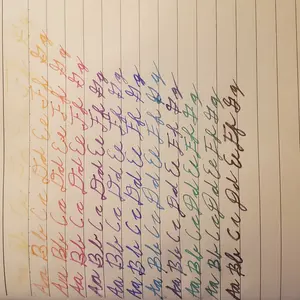 Aa Bb Cc Dd Ee Ff Gg
Aa Bb Cc Dd Ee Ff Gg
Aa Bb Cc Dd Ee Ff Gg
Aa Bb Cc Dd Ee Ff Gg
Aa Bb Cc Dd Ee Ff Gg
Aa Bb Cc Dd Ee Ff Gg
Aa Bb Cc Dd Ee Ff Gg
Aa Bb Cc Dd Ee Ff Gg
Aa Bb Cc Dd Ee Ff Gg
Aa Bb Cc Dd Ee Ff Gg
Aa Bb Cc Dd Ee Ff Gg